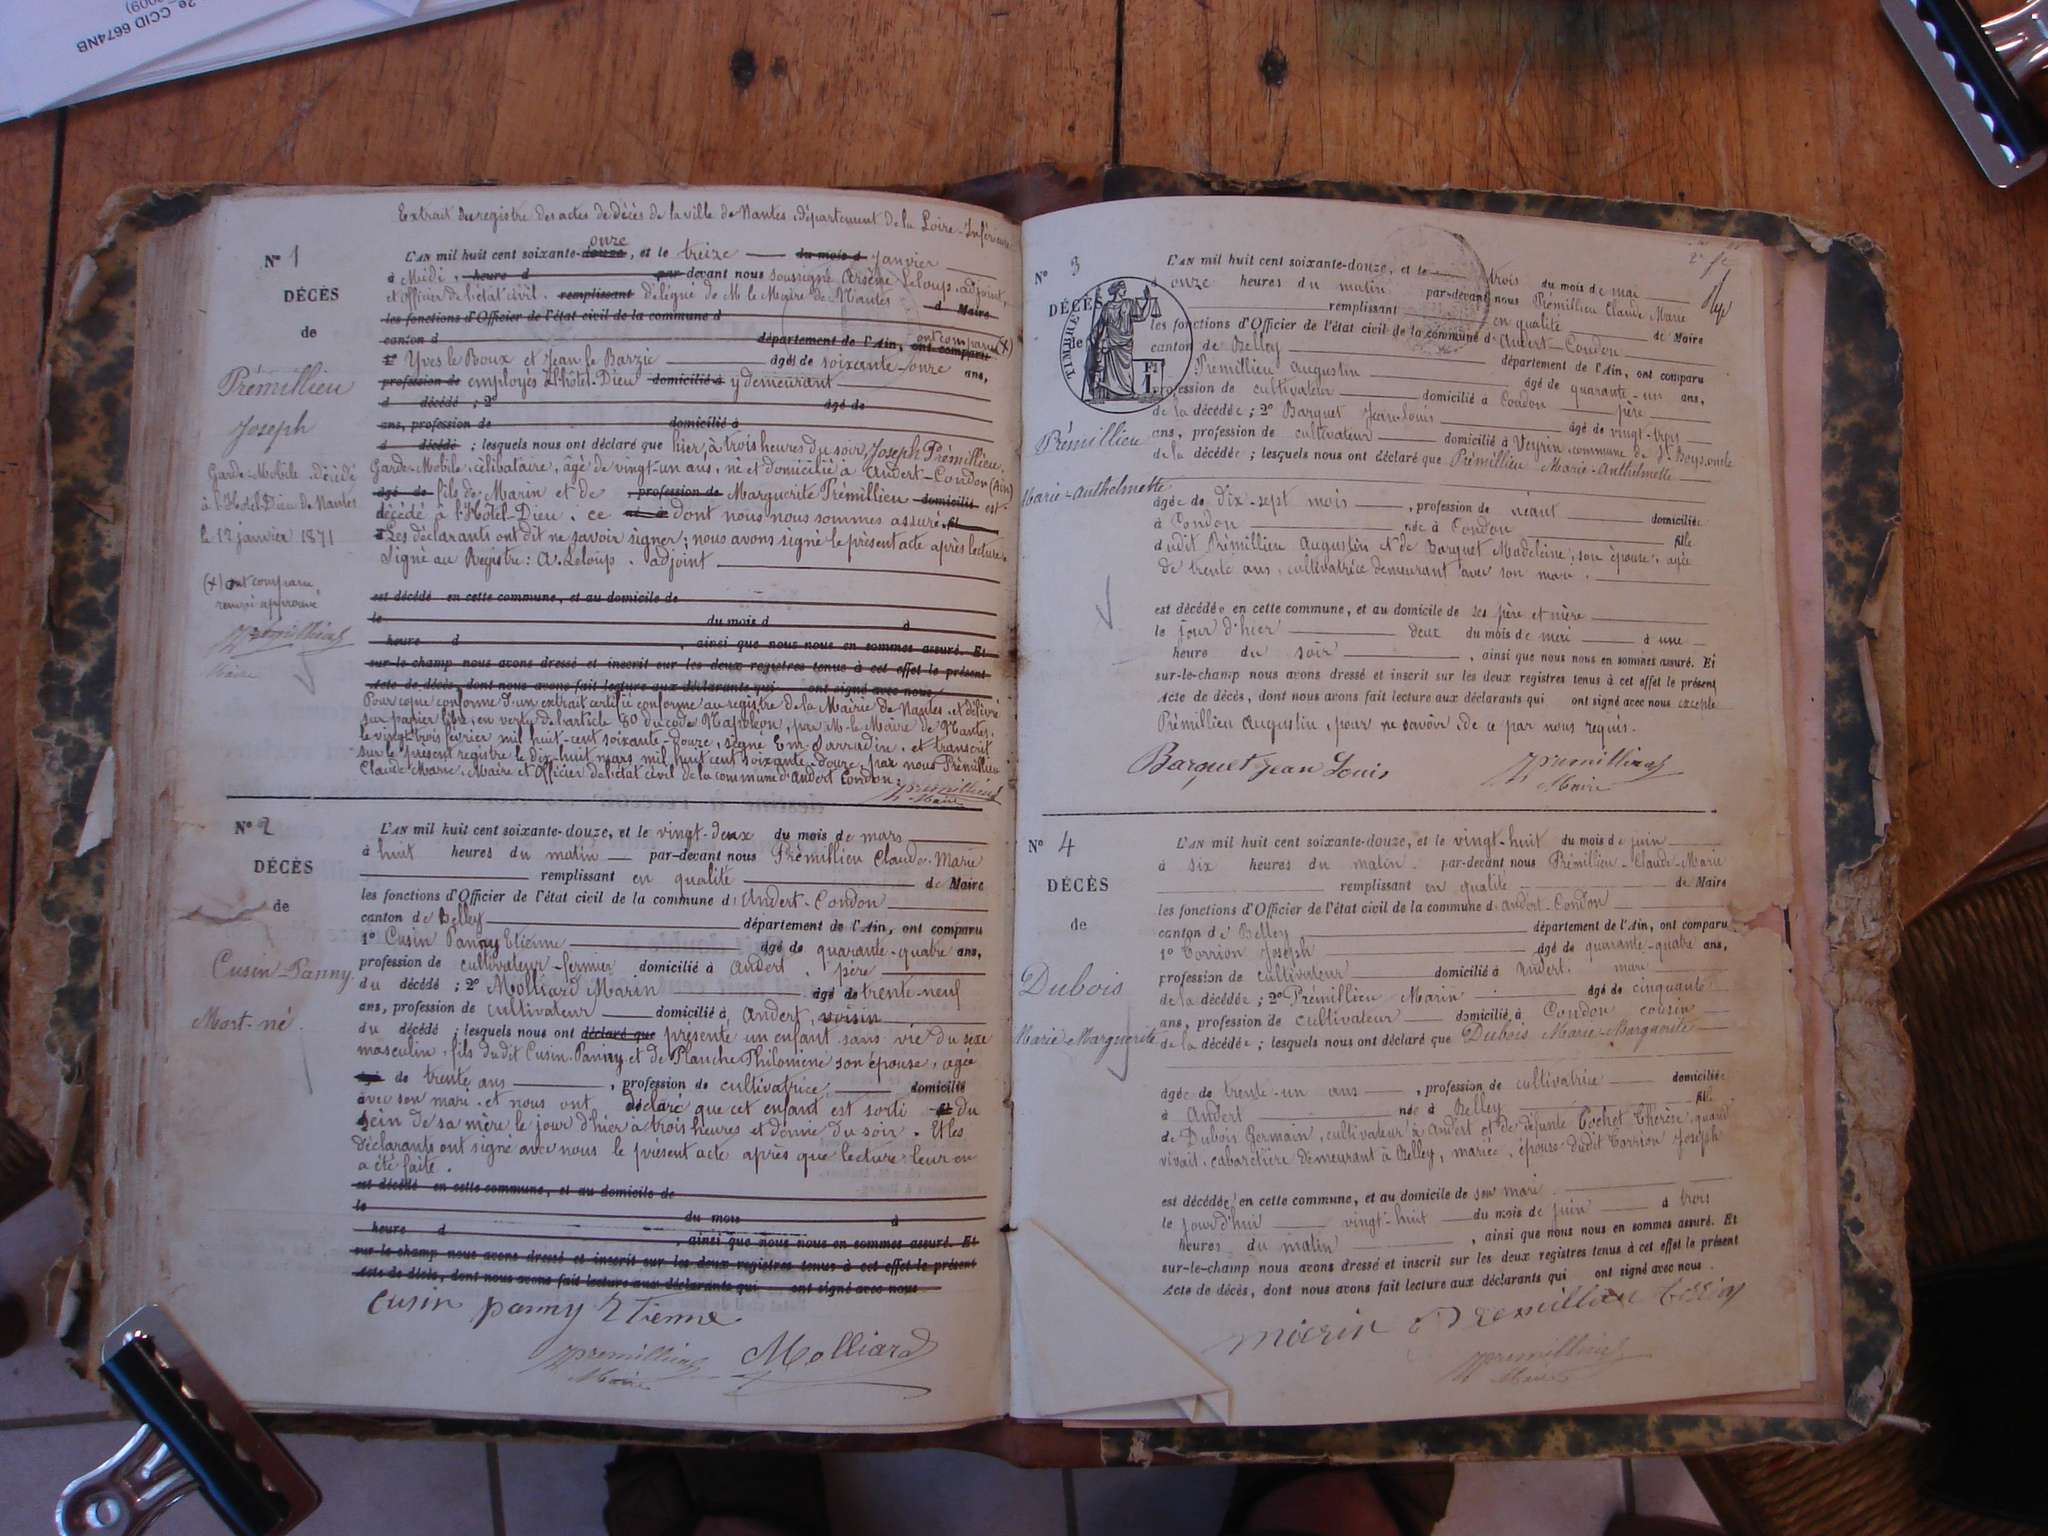 2e. CCID 6674NB
2009)
Extrait du registre des actes de décès de la ville de Nantes, département de la Loire-Inférieure
No 1
DÉCÈS
de
Prémillieu
Joseph
Garde-Mobile décédé
à l'Hôtel-Dieu de Nantes
le 12 janvier 1871
(x) ont comparu
renvoi approuvé
Premillieu
Maire
onze
L'AN mil huit cent soixante-douze, et le treize du mois d janvier
à Midi, heure d par-devant nous soussigné Arsène Leloup, adjoint,
et officier de l'état civil, remplissant délégué de M le Maire de Nantes d Maire
les fonctions d'Officier de l'état civil de la commune d
canton d département de l'Ain, ont comparu ont comparu (x)
1º Yves le Roux et Jean le Barzic âgés de soixante-onze ans,
profession de employés à l'hôtel-Dieu domiciliés à y demeurant
d décédé ; 2º âgé de
ans, profession de domicilié à
d décédé ; lesquels nous ont déclaré que hier, à trois heures du soir, Joseph Prémillieu,
Garde-Mobile, célibataire, âgé de vingt-un ans, né et domicilié à Andert-Condon (Ain)
âgé de fils de Marin et de profession de Marguerite Prémillieu domicilié est
décédé à l'Hôtel-Dieu, ce né à dont nous nous sommes assuré. fil
Les déclarants ont dit ne savoir signer; nous avons signé le présent acte après lecture.
Signé au Registre: A. Leloup, adjoint
est décédé en cette commune, et au domicile de
le du mois d à
heure d , ainsi que nous nous en sommes assuré. Et
sur-le-champ nous avons dressé et inscrit sur les deux registres tenus à cet effet le présent
Acte de décès, dont nous avons fait lecture aux déclarants qui ont signé avec nous
Pour copie conforme d'un extrait certifié conforme au registre de la Mairie de Nantes, et délivré
sur papier libre, en vertu de l'article 80 du code Napoléon, par M. le Maire de Nantes,
le vingt-trois février mil huit-cent soixante-douze, signé Em. Sarradin, et transcrit
sur le présent registre le dix-huit mars mil huit cent soixante-douze, par nous Prémillieu
Claude-Marie, Maire et Officier de l'état civil de la commune d'Andert Condon;
Premillieu
Maire
No 2
DÉCÈS
de
Cusin-Panny
Mort-né.
L'AN mil huit cent soixante-douze, et le vingt-deux du mois de mars
à huit heures du matin par-devant nous Prémillieu Claude-Marie
remplissant en qualité de Maire
les fonctions d'Officier de l'état civil de la commune d'Andert-Condon
canton de Belley département de l'Ain, ont comparu
1º Cusin Panny Etienne âgé de quarante-quatre ans,
profession de cultivateur-fermier domicilié à Andert, père
du décédé ; 2º Molliard Marin âgé de trente-neuf
ans, profession de cultivateur domicilié à Andert, voisin
du décédé ; lesquels nous ont déclaré que présenté un enfant sans vie du sexe
masculin, fils dudit Cusin-Panny et de Planche Philomène son épouse, agée
de trente ans , profession de cultivatrice, domicilié
avec son mari, et nous ont déclaré que cet enfant est sorti fil du
sein de sa mère le jour d'hier à trois heures et demie du soir. Et les
déclarants ont signé avec nous le présent acte après que lecture leur en
a été faite.
est décédé en cette commune, et au domicile de
le du mois à
heure d , ainsi que nous nous en sommes assuré. Et
sur-le-champ nous avons dressé et inscrit sur les deux registres tenus à cet effet le présent
Acte de décès, dont nous avons fait lecture aux déclarants qui ont signé avec nous
Cusin panny Etienne
Premillieu Molliard
Maire
No 3
DÉCÈS
de
TIMBRE
F1
1.
Prémillieu
Marie-Anthelmette
L'AN mil huit cent soixante-douze, et le trois du mois de mai
à onze heures du matin par-devant nous Prémillieu Claude Marie
remplissant en qualité de Maire
les fonctions d'Officier de l'état civil de la commune d'Andert-Condon
canton de Belley département de l'Ain, ont comparu
Prémillieu Augustin âgé de quarante-un ans,
profession de cultivateur domicilié à Condon père
de la décédée ; 2º Barquet Jean-Louis âgé de vingt-trois
ans, profession de cultivateur domicilié à Veyrin commune de St Bois, oncle
de la décédée ; lesquels nous ont déclaré que Prémillieu Marie-Anthelmette
âgée de dix-sept mois , profession de néant domiciliée
à Condon née à Condon fille
dudit Prémillieu Augustin et de Barquet Madeleine, son épouse, agée
de trente ans, cultivatrice demeurant avec son mari.
est décédée en cette commune, et au domicile de ses père et mère
le jour d'hier deux du mois de mai à une
heure du soir , ainsi que nous nous en sommes assuré. Et
sur-le-champ nous avons dressé et inscrit sur les deux registres tenus à cet effet le présent
Acte de décès, dont nous avons fait lecture aux déclarants qui ont signé avec nous excepté
Prémillieu Augustin, pour ne savoir, de ce par nous requis.
Barquet Jean Louis Premillieu
Maire
No 4
DÉCÈS
de
Dubois
Marie-Marguerite
L'AN mil huit cent soixante-douze, et le vingt-huit du mois de juin
à six heures du matin par-devant nous Prémillieu-Claude-Marie
remplissant en qualité de Maire
les fonctions d'Officier de l'état civil de la commune d'Andert-Condon
canton de Belley département de l'Ain, ont comparu
1º Torrion Joseph âgé de quarante-quatre ans,
profession de cultivateur domicilié à Andert, mari
de la décédée ; 2º Prémillieu Marin âgé de cinquante
ans, profession de cultivateur domicilié à Condon cousin
de la décédée ; lesquels nous ont déclaré que Dubois Marie-Marguerite
âgée de trente-un ans , profession de cultivatrice domiciliée
à Andert née à Belley fille
de Dubois Germain, cultivateur à Andert et de défunte Cochet Thérèse, quand
vivait, cabaretière demeurant à Belley, mariée, épouse dudit Torrion Joseph
est décédée en cette commune, et au domicile de son mari
le jourd'hui vingt-huit du mois de juin à trois
heures du matin , ainsi que nous nous en sommes assuré. Et
sur-le-champ nous avons dressé et inscrit sur les deux registres tenus à cet effet le présent
Acte de décès, dont nous avons fait lecture aux déclarants qui ont signé avec nous.
Marin Premillieu
Premillieu
Maire